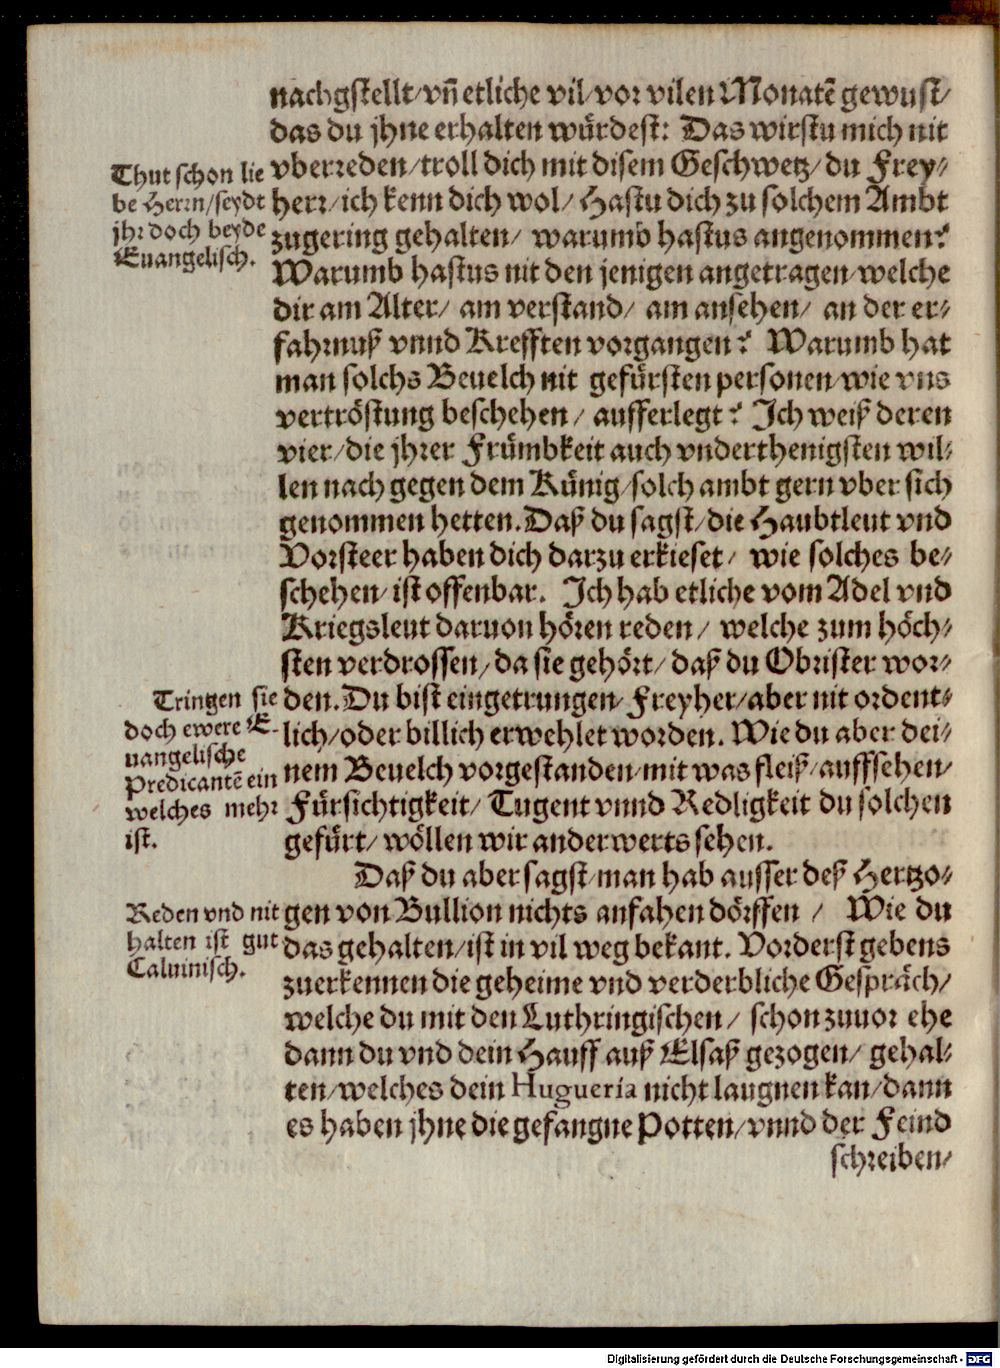 nachgstellt/vñ etliche vil/vor vilen Monatẽ gewust/
das du jhne erhalten würdest: Das wirstu mich nit
vberreden/troll dich mit disem Geschwetz/du Frey-
herr/ich kenn dich wol/ Hastu dich zu solchem Ambt
zugering gehalten/ warumb hastus angenommen?
Warumb hastus nit den jenigen angetragen/welche
dir am Alter/ am verstand/ am ansehen/ an der er-
fahrnuß vnnd Krefften vorgangen? Warumb hat
man solchs Beuelch nit gefürsten personen/wie vns
vertröstung beschehen/ aufferlegt? Ich weiß deren
vier/die jhrer Frümbkeit auch vnderthenigsten wil-
len nach gegen dem Künig/solch ambt gern vber sich
genommen hetten. Daß du sagst/die Haubtleut vnd
Vorsteer haben dich darzu erkieset/ wie solches be-
schehen/ist offenbar. Ich hab etliche vom Adel vnd
Kriegsleut daruon hören reden/ welche zum höch-
sten verdrossen/da sie gehört/daß du Obrister wor-
den. Du bist eingetrungen/Freyher/aber nit ordent-
lich/oder billich erwehlet worden. Wie du aber dei-
nem Beuelch vorgestanden/mit was fleiß/auffsehen/
Fürsichtigkeit/ Tugent vnnd Redligkeit du solchen
gefürt/ wöllen wir anderwerts sehen.
Daß du aber sagst/man hab ausser deß Hertzo-
gen von Bullion nichts anfahen dörffen/ Wie du
das gehalten/ist in vil weg bekant. Vorderst gebens
zuerkennen die geheime vnd verderbliche Gespräch/
welche du mit den Luthringischen/ schon zuuor ehe
dann du vnd dein Hauff auß Elsaß gezogen/ gehal-
ten/welches dein Hugueria nicht laugnen kan/dann
es haben jhne die gefangne Potten/vnnd der Feind
schreiben/
Thut schon lie
be Herrn/seydt
jhr doch beyde
Euangelisch.
Tringen sie
doch ewere E-
uangelische
Predicantẽ ein
welches mehr
ist.
Reden vnd nit
halten ist gut
Caluinisch.
Digitalisierung gefördert durch die Deutsche Forschungsgemeinschaft - DFG